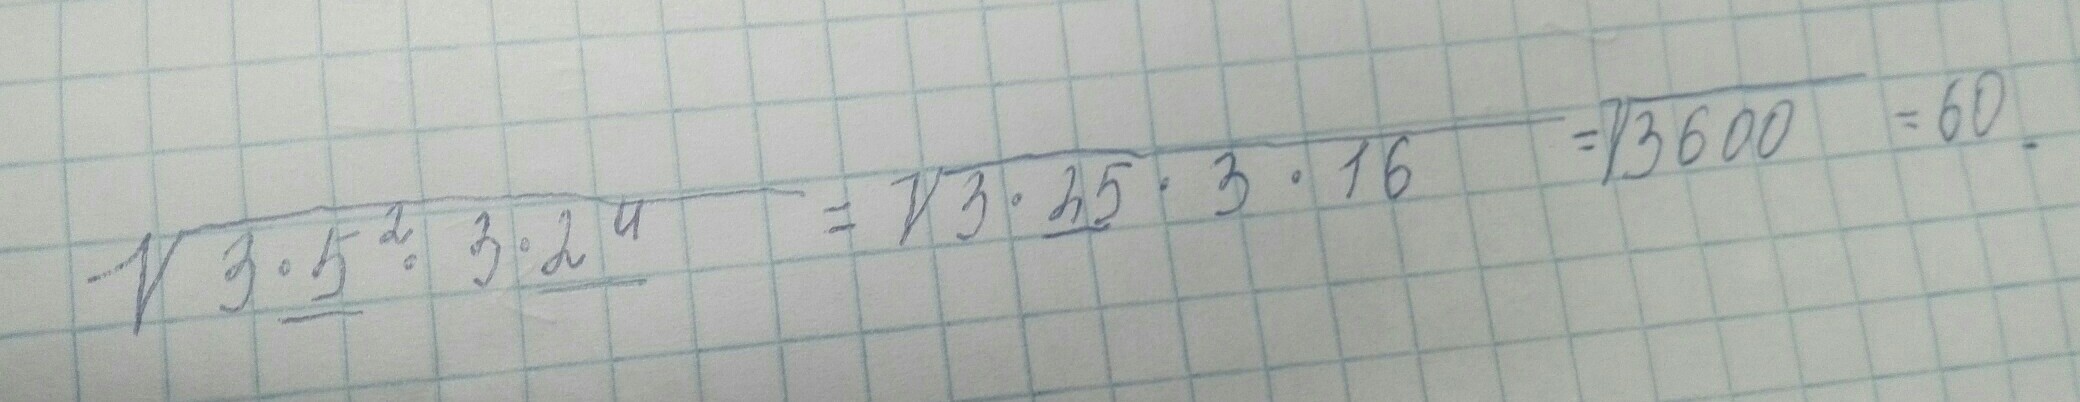 √3·5²·3·2⁴ = √3·25·3·16 = √3600 = 60.